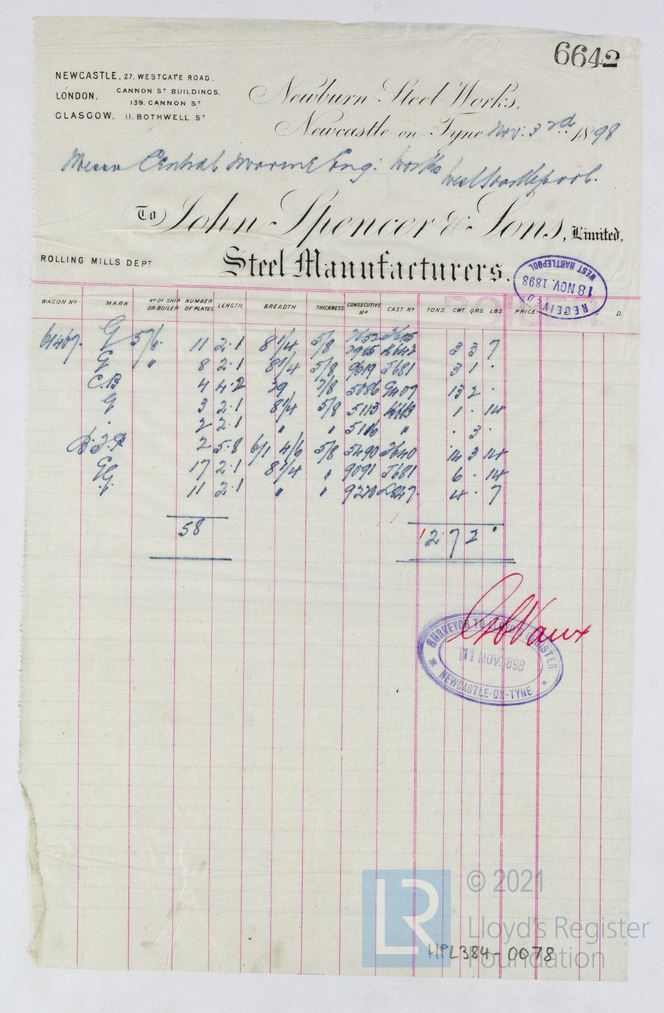 6642
NEWCASTLE, 27. WESTGATE ROAD.
LONDON. CANNON ST BUILDINGS,
139. CANNON ST
GLASGOW, 11. BOTHWELL ST
Newburn Steel Works,
Newcastle on Tyne Nov: 3rd 1898
Messrs Central Marine Eng: Works West Hartlepool.
To John Spencer & Sons, Limited,
ROLLING MILLS DEPT
Steel Manufacturers.
RECEIVED
18 NOV. 1898
WEST HARTLEPOOL
WAGON No MARK No OF SHIP OR BOILER NUMBER OF PLATES LENGTH. BREADTH. THICKNESS CONSECUTIVE No CAST No TONS. CWT. QRS. LBS. PRICE D.
G 5/6 11 2.1 8 1/4 5/8 3 3 7
G " 8 2.1 8 1/4 5/8 9619 5681 3 1 .
C.B 4 4.2 29 7/8 5086 13 2 .
G 3 2.1 8 1/4 5/8 5113 1 . 14
. 2 2.1 " " 5116 " . 3 .
2 5.8 6/1 4/6 5/8 5490 5640 14 3 14
G 17 2.1 8 1/4 " 9091 5681 6 . 14
G. 11 2.1 " " 9270 4 . 7
58 1 2 7 2 .
SURVEYOR TO LLOYD'S REGISTER
11 NOV. 1898
NEWCASTLE-ON-TYNE
LR
© 2021
Lloyd's Register
Foundation
HPL384-0078